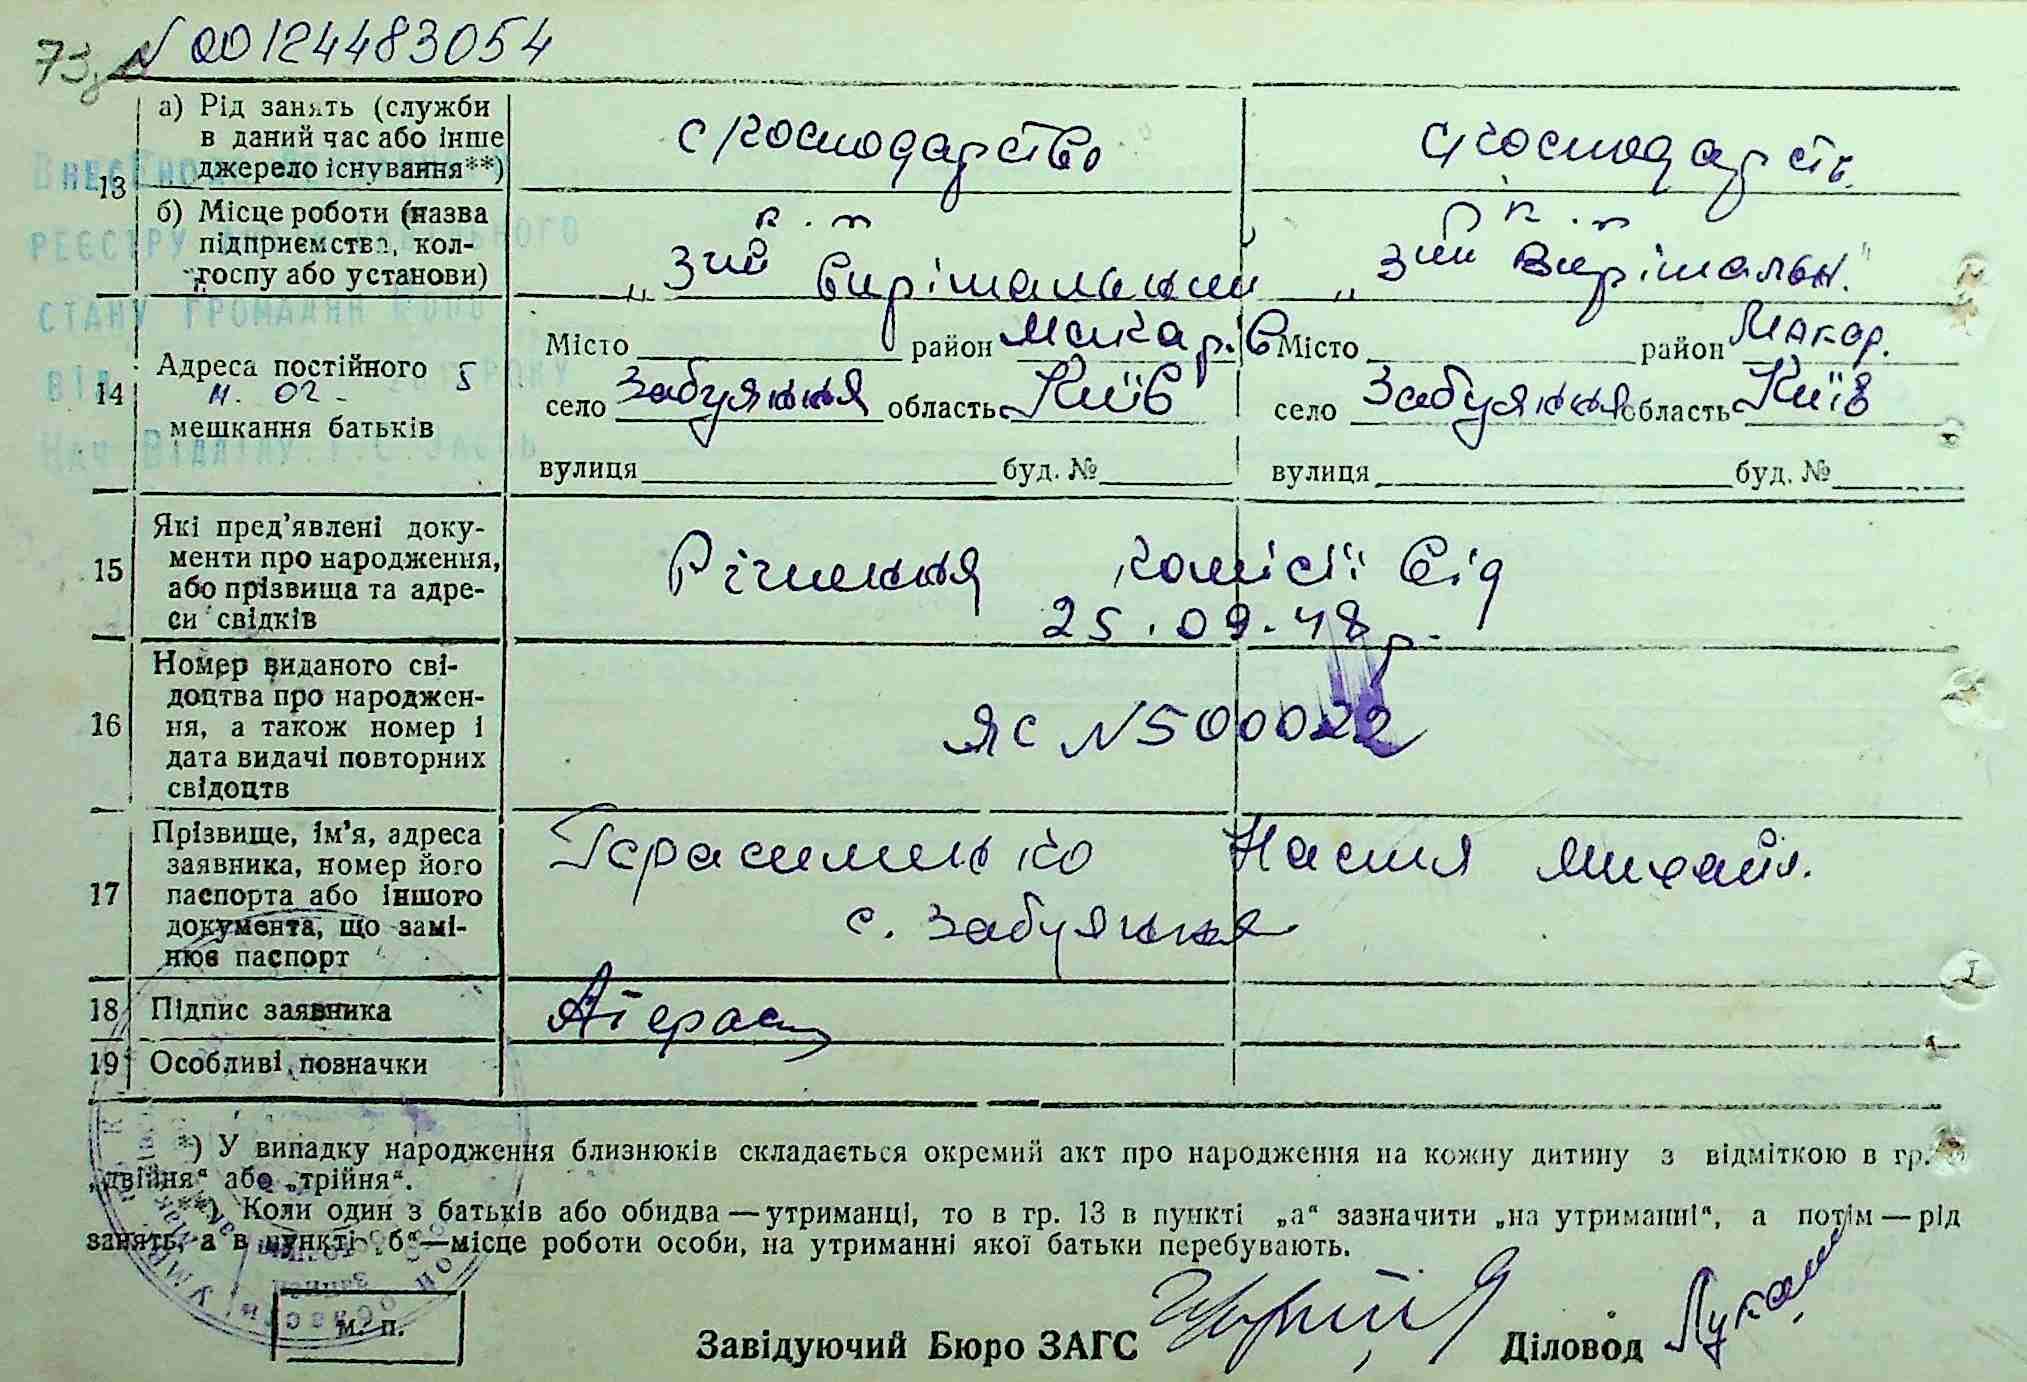 73
N 00124483054
13
а) Рід занять (служби
в даний час або інше
джерело існування**)
с господарство
с господарств.
б) Місце роботи (назва
підприємства, кол-
госпу або установи)
к.г.
„3ий вирішальний
к.г.
„3ий вирішальн."
РЕЄСТРУ
СТАНУ ГРОМАДЯН
ВІД 11. 02. 5 РОКУ
НАЧ ВІДДІЛУ
14
Адреса постійного
мешкання батьків
Місто район Макар. в
село Забуяння область Київ
вулиця буд. №
Місто район Макар.
село Забуяння область Київ
вулиця буд. №
15
Які пред'явлені доку-
менти про народження,
або прізвища та адре-
си свідків
Рішення комісії від
25.09.48 р.
16
Номер виданого сві-
доцтва про народжен-
ня, а також номер і
дата видачі повторних
свідоцтв
ЯС N 500022
17
Прізвище, ім'я, адреса
заявника, номер його
паспорта або іншого
документа, що замі-
нює паспорт
Герасименко Настя Михайл.
с. Забуяння
18
Підпис заявника
19
Особливі позначки
*) У випадку народження близнюків складається окремий акт про народження на кожну дитину з відміткою в гр.
„двійня“ або „трійня“.
**) Коли один з батьків або обидва — утриманці, то в гр. 13 в пункті „а“ зазначити „на утриманні“, а потім — рід
занять, а в пункті „б“—місце роботи особи, на утриманні якої батьки перебувають.
м. п.
Завідуючий Бюро ЗАГС
Діловод